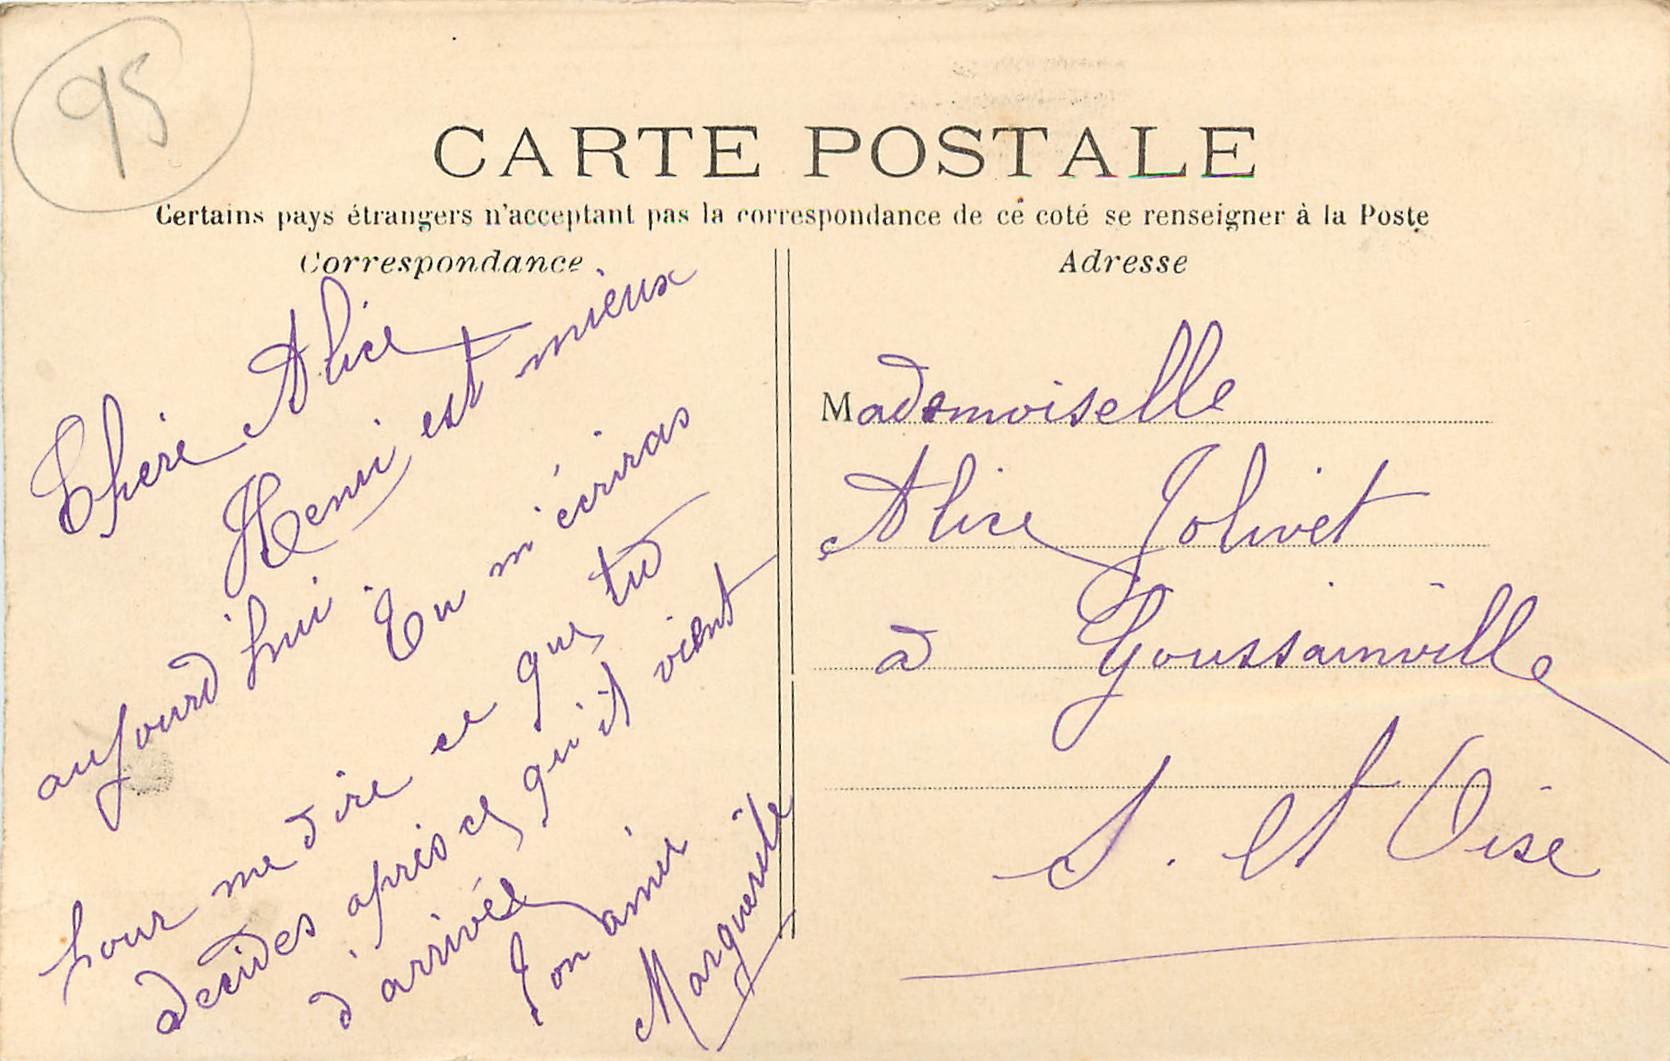 95
CARTE POSTALE
Certains pays étrangers n'acceptant pas la correspondance de ce coté se renseigner à la Poste
Correspondance
Chère Alice
Henri est mieux
aujourd'hui. Tu m'écriras
pour me dire ce que tu
decides après ce qu'il vient
d'arrivée
Ton amie
Marguerite
Adresse
Mademoiselle
Alice Jolivet
à Goussainville
S. et Oise